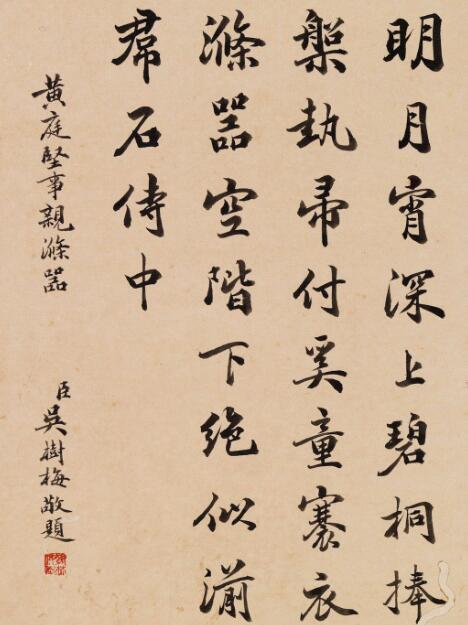 明月宵深上碧桐捧
槃執帚付奚童褰衣
滌器空階下絶似湔
帬石侍中
黃庭堅事親滌器
臣吳樹梅敬題